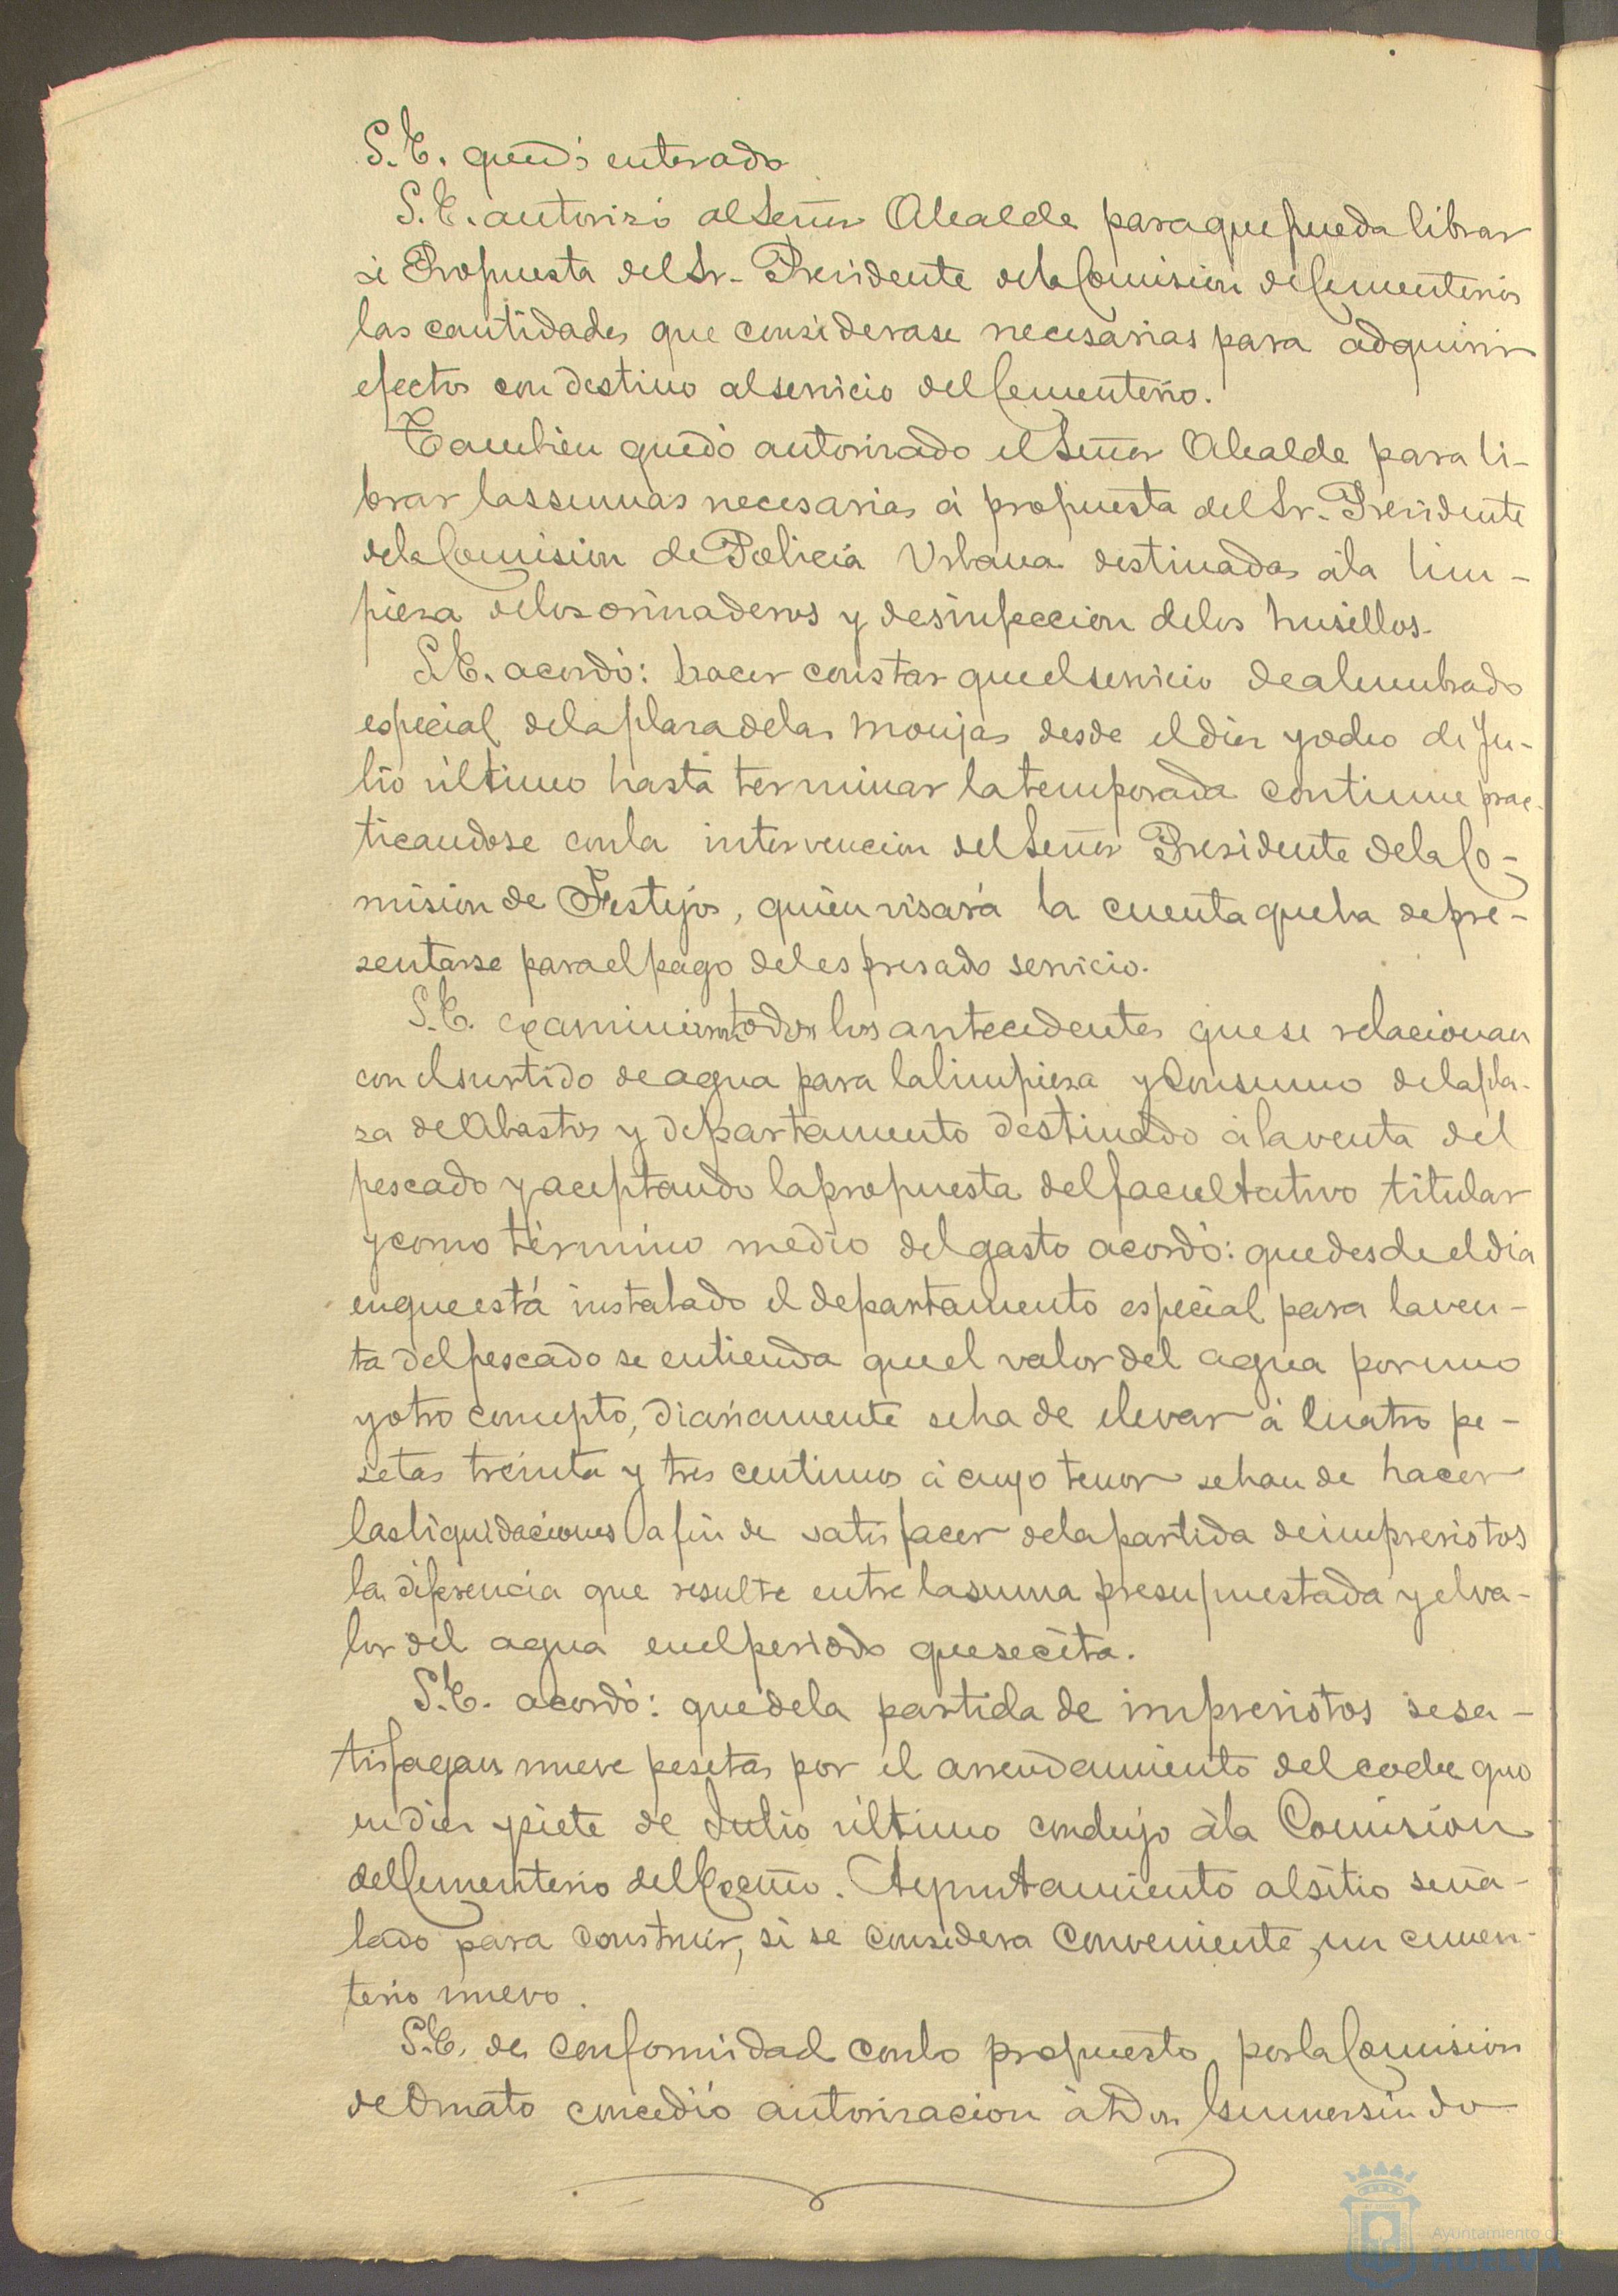 S.E. quedó enterado
S.E. autorizó al Señor Alcalde para que pueda librar
á Propuesta del Sr. Presidente de la Comision de Cementerios
las cantidades que considerase necesarias para adquirir
efectos con destino al servicio del Cementerio.
Tambien quedó autorizado el Señor Alcalde para li-
brar las sumas necesarias á propuesta del Sr. Presidente
de la Comision de Policia Urbana destinadas á la lim-
pieza de los orinaderos y desinfeccion de los husillos.
S.E. acordó: hacer constar que el servicio de alumbrado
especial de la plaza de las Monjas desde el diez y ocho de Ju-
lio último hasta terminar la temporada continue prac-
ticandose con la intervencion del Señor Presidente de la Co-
mision de Festejos, quien visará la cuenta que ha de pre-
sentarse para el pago del espresado servicio.
S.E. examinó todos los antecedentes que se relacionan
con el surtido de agua para la limpieza y consumo de la pla-
za de Abastos y departamento destinado á la venta del
pescado y aceptando la propuesta del facultativo titular
y como término medio del gasto acordó: que desde el dia
en que está instalado el departamento especial para la ven-
ta del pescado se entienda que el valor del agua por uno
y otro concepto, diariamente se ha de elevar á cuatro pe-
setas treinta y tres centimos á cuyo tenor se han de hacer
las liquidaciones a fin de satisfacer de la partida de imprevistos
la diferencia que resulte entre la suma presupuestada y el va-
lor del agua en el periodo que se cita.
S.E. acordó: que de la partida de imprevistos se sa-
tisfagan nueve pesetas por el arrendamiento del coche que
en diez y siete de Julio último condujo á la Comision
del Cementerio del Excmo. Ayuntamiento al sitio seña-
lado para construir, si se considera conveniente, un cemen-
terio nuevo.
S.E. de conformidad con lo propuesto por la Comision
de Ornato concedió autorizacion á Don Gumersindo
Ayuntamiento de
HUELVA